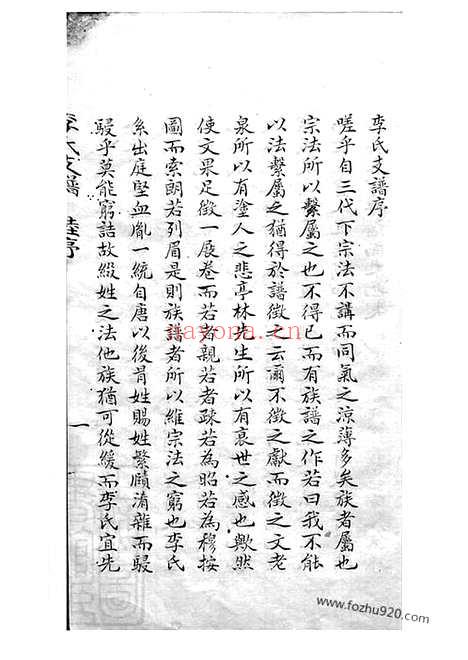 李氏支譜序
嗟乎自三代下宗法不講而同氣之涼薄多矣族者屬也
宗法所以繫屬之也不得已而有族譜之作若曰我不能
以法繫屬之猶得於譜徵之云爾不徵之獻而徵之文老
泉所以有塗人之悲亭林先生所以有衰世之感也歟然
使文果足徵一展卷而若者親若者疎若為昭若為穆按
圖而索朗若列眉是則族譜者所以維宗法之窮也李氏
系出庭堅血胤一統自唐以後冐姓賜姓繁賾淆雜而駸
駸乎莫能窮詰故綴姓之法他族猶可從緩而李氏宜先
李氏支譜 陸序
一
nayona.cn
www.fozhu920.com